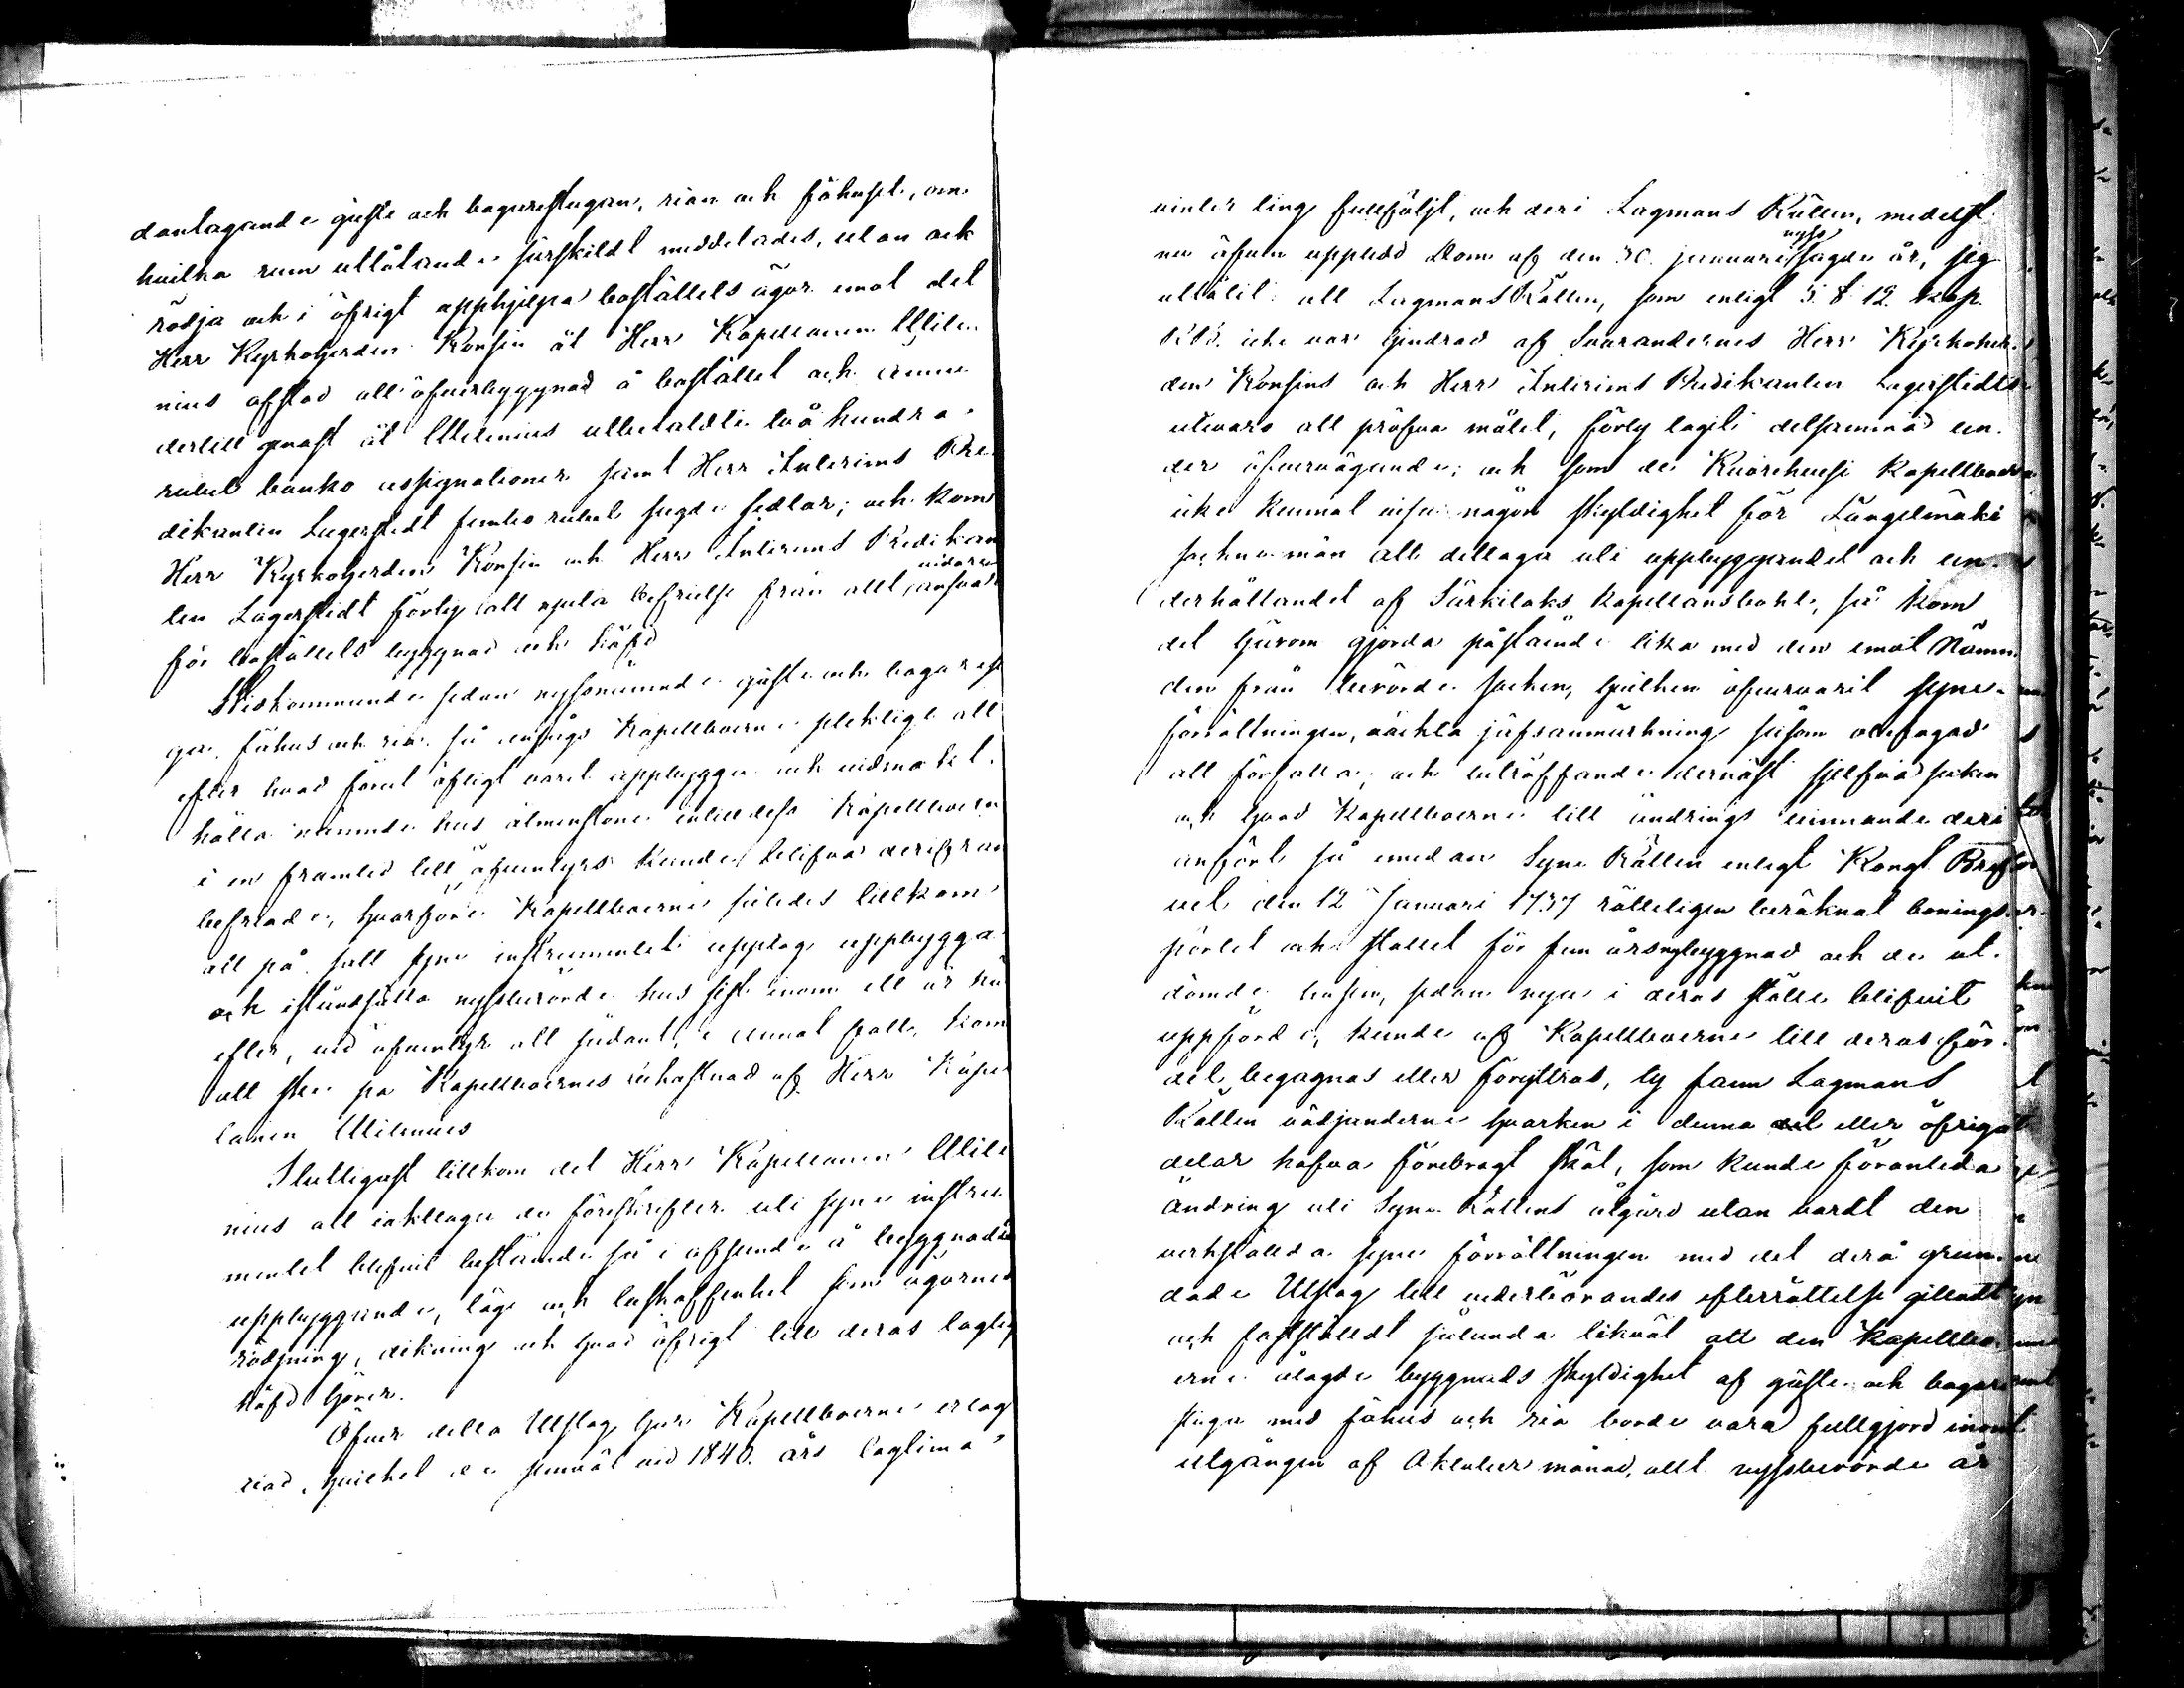 dantagande gäste och bagarestugan, rian och fähuset, om
hvilka rum utlåtande särskildt meddelades, utan ock
rödja och i öfrigt upphjelpa boställets ägor emot det
Herr Kyrkoherden Konsin åt Herr Kapellanen Mile
nius afstod all öfverbyggnad å bostället och denne
dertill genast åt Milenius utbetaldte två hundra
rubel banko assignationer samt Herr Interims Pre
dikanten Lagerstedt femtio rubel sagde sedlar; och kom
Herr Kyrkoherden Konsin och Herr Interims Predikan
ten Lagerstedt förty att njuta befrielse från allt vidare ansvar
för boställets byggnad och häfd
Vidkommande sedan nyssnämnde gäste och bagarestu
ga, fähus och ria, så ansågs Kapellboerne pliktige att
efter hvad förut öfligt varit uppbygga och vidmakt
hålla nämnde hus åtminstone intilldess Kapellboerne
i en framtid till äfventyrs kunde blifva derifrån
befriade, hvarföre Kapellboerne således tillkom
att på sätt syne instrumentet upptog uppbygga
och iståndsätta nyssberörde hus sist inom ett år här
efter, vid äfventyr att sådant, i annat fall, kom
att ske på Kapellboernes bekostnad af Herr Kapel
lanen Milenius
Slutligast tillkom det Herr Kapellanen Mile
nius att iakttaga de föreskrifter uti syne instru
mentet blifvit bestämde så i afseende å byggnaders
uppbyggande, läge och beskaffenhet som ägornes
rödjning, dikning och hvad öfrigt till deras laglig
häfd hörer.
Öfver detta Utslag har Kapellboerne erlagt
vad, hvilket de jemväl vid 1840. års lagtima
vinter ting fullföljt, och deri Lagmans Rätten, medelst
nu äfven uppvedd Dom af den 30. januari nyss sagde år, sig
utlåtit: att Lagmans Rätten, som enligt 5. § 12. kap.
R.B. icke var hindrad af Svarandernes Herr Kyrkoher
den Konsins och Herr Interims Predikanten Lagerstedts
utevaro att pröfva målet, förty tagit detsamma un
der öfvervägande; och som de Kuorehensi Kapellboerne
icke kunnat visa någon skyldighet för Längelmäki
sockne män att deltaga uti uppbyggandet och un
derhållandet af Särkilaks Kapellansbohl, så kom
det härom gjorda påstående lika med den emot Nämn
den från berörde socken, hvilken öfvervarit syne
förrättningen, väckta jäfsanmärkning såsom obefogad
att förfalla, och beträffande dernäst sjelfva saken
och hvad Kapellboerne till ändrings vinnande deri
anfört så emedan Syne Rätten enligt Kongl. Brefv
vet den 12 Januari 1757 rätteligen beräknat bonings
pörtet och stallet för fem årsnybyggnad och de ut
dömde husen, sedan nya i deras ställe blifvit
uppförde, kunde af Kapellboerne till deras för
del begagnas eller förytras, ty fann Lagmans
Rätten vädjanderne hvarken i denna del eller öfriga
delar hafva förebragt skäl, som kunde föranleda
ändring uti Syne Rättens åtgärd utan vardt den
verkställda syne förrättningen med det derå grun
dade Utslag till vederbörandes efterrättelse gilladt
och fastställdt sålunda likväl att den Kapellbo
erne ålagde byggnads skyldighet af gäste och bagare
stuga med fähus och ria borde vara fullgjord inom
utgången af Oktober månad, allt nyssberörde år